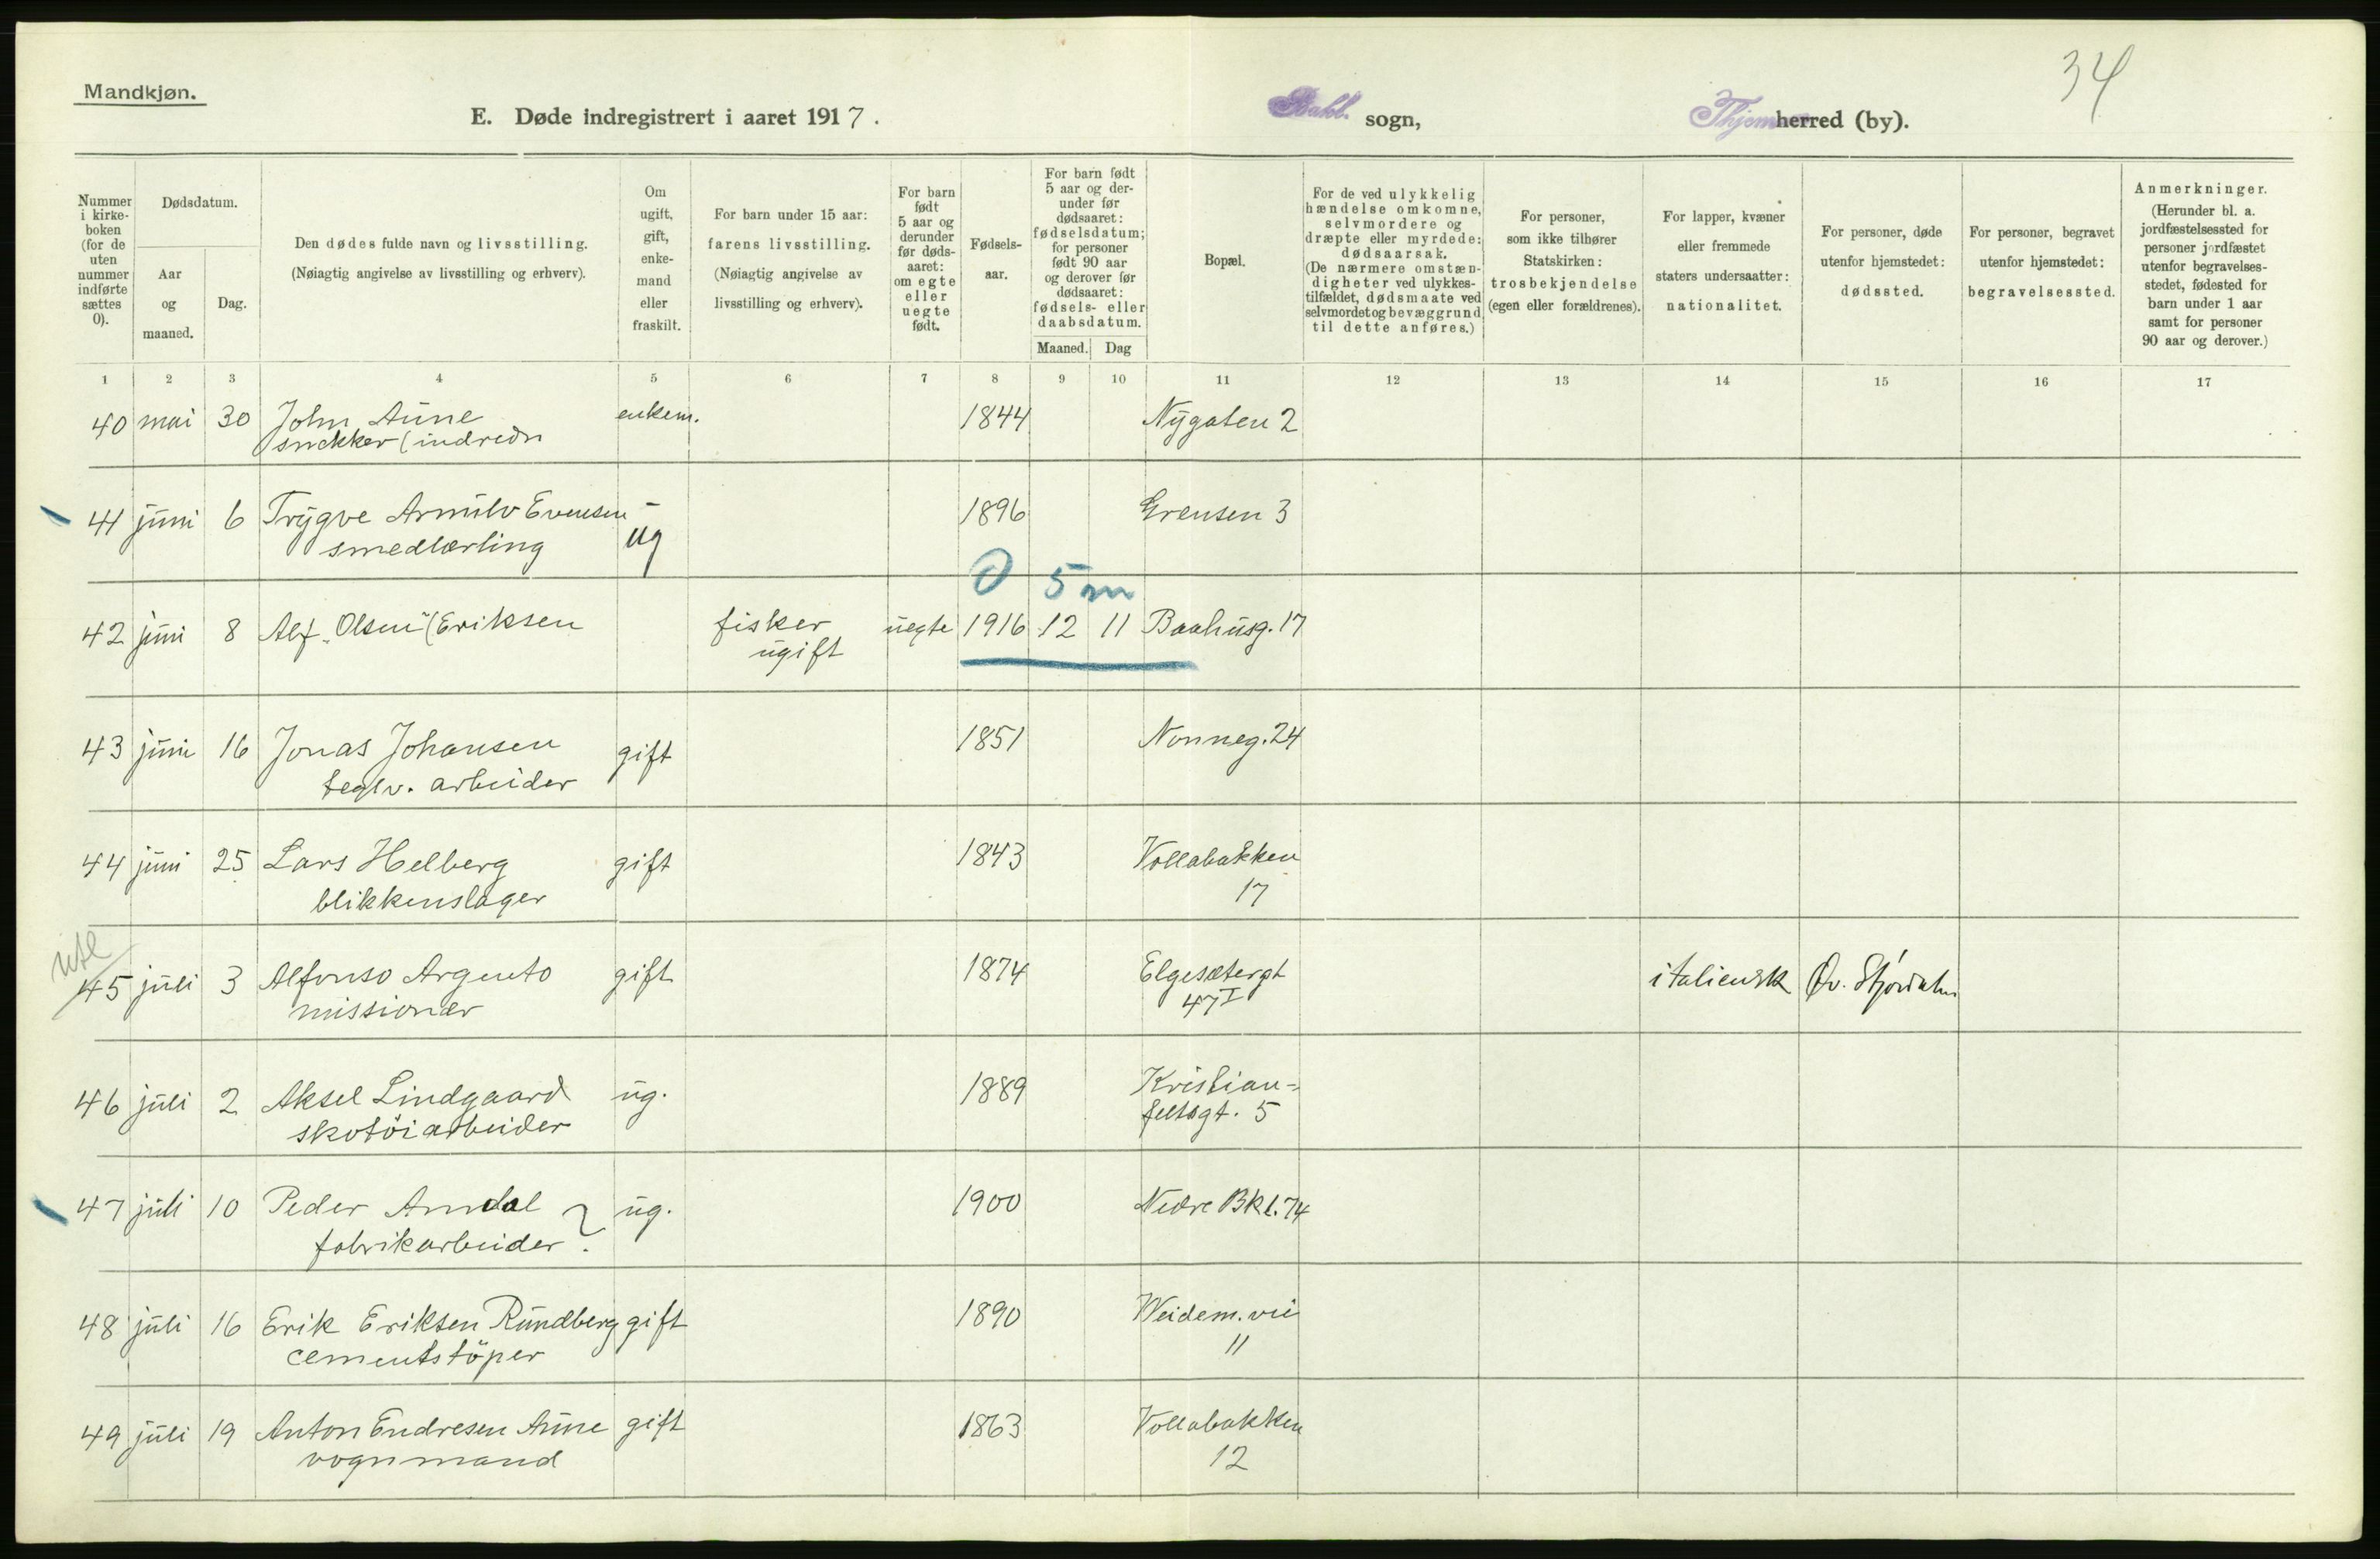 34
Mandkjøn.
E. Døde indregistrert i aaret 1917. Bakl. sogn, Thjem herred (by).
Nummer i kirke-boken (for de uten nummer indførte sættes 0).
Dødsdatum.
Aar og maaned.
Dag.
Den dødes fulde navn og livsstilling. (Nøiagtig angivelse av livsstilling og erhverv).
Om ugift, gift, enke-mand eller fraskilt.
For barn under 15 aar: farens livsstilling. (Nøiagtig angivelse av livsstilling og erhverv).
For barn født 5 aar og derunder før døds-aaret: om egte eller uegte født.
Fødsels-aar.
For barn født 5 aar og der-under før dødsaaret: fødselsdatum; for personer født 90 aar og derover før dødsaaret: fødsels- eller daabsdatum.
Maaned. Dag
Bopæl.
For de ved ulykkelig hændelse omkomne, selvmordere og dræpte eller myrdede: dødsaarsak. (De nærmere omstæn-digheter ved ulykkes-tilfældet, dødsmaate ved selvmordet og bevæggrund til dette anføres.)
For personer, som ikke tilhører Statskirken: trosbekjendelse (egen eller forældrenes).
For lapper, kvæner eller fremmede staters undersaatter: nationalitet.
For personer, døde utenfor hjemstedet: dødssted.
For personer, begravet utenfor hjemstedet: begravelsessted.
Anmerkninger. (Herunder bl. a. jordfæstelsessted for personer jordfæstet utenfor begravelses-stedet, fødested for barn under 1 aar samt for personer 90 aar og derover.)
1 2 3 4 5 6 7 8 9 10 11 12 13 14 15 16 17
40 mai 30 John Aune enkem. 1844 Nygaten 2
snekker (indredn
41 juni 6 Trygve Arnulv Evensen - 1896 Grensen 3
smedlærling ug
0 5 m
42 juni 8 Alf "Olsen" (Eriksen fisker uegte 1916 12 11 Baahusg. 17
ugift
43 juni 16 Jonas Johansen gift 1851 Nonneg. 24
teglv. arbeider
44 juni 25 Lars Helberg gift 1843 Vollabakken
blikkenslager 17
utl
45 juli 3 Alfonso Argento gift 1874 Elgesætergt italiensk Øv. Stjørdalen
missionær 47 I
46 juli 2 Aksel Lindgaard ug. 1889 Kristian-
skotöiarbeider feltsgt. 5
47 juli 10 Peder Amdal ? ug. 1900 Nedre Bkl. 74
fabrikarbeider
48 juli 16 Erik Eriksen Rundberg gift 1890 Weidem.vei
cementstöper 11
49 juli 19 Anton Endresen Aune gift 1863 Vollabakken
vognmand 12